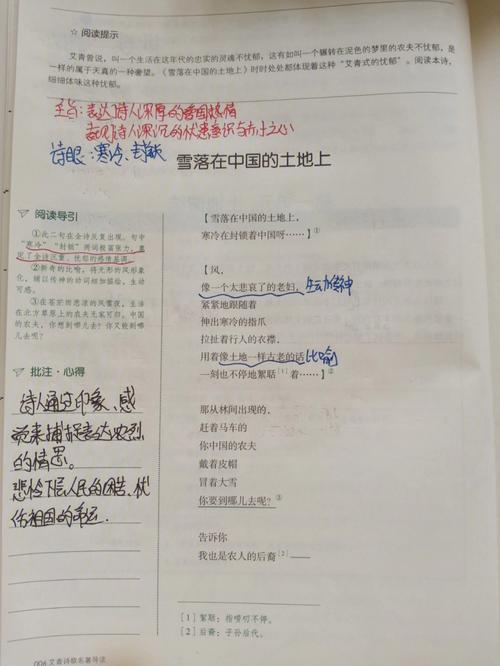 ☆ 阅读提示
艾青曾说,叫一个生活在这年代的忠实的灵魂不忧郁,这有如叫一个辗转在泥色的梦里的农夫不忧郁,是
一样的属于天真的一种奢望。《雪落在中国的土地上》时时处处都体现着这种“艾青式的忧郁”。阅读本诗,
细细体味这种忧郁。
主旨:表达诗人深厚的爱国热情
表现诗人深沉的忧患意识与赤子之心
诗眼:寒冷、封锁
雪落在中国的土地上
阅读导引
①此二句在全诗反复出现。句中
“寒冷”“封锁”两词极富张力,奠
定了全诗沉重、忧郁的感情基调。
②新奇的比喻,将无形的风形象
化,辅以传神的动词细细描绘,生动
可感。
③在茫茫而悲凉的风雪夜,生活
在北方草原上的农夫无家可归。中国
的农夫,你想到哪儿去?你又能到哪
儿去呢?
批注·心得
诗人通过印象、感
觉来捕捉表达浓烈
的情愚。
悲怜下层人民的困苦、忧
伤祖国的命运.
【雪落在中国的土地上,
寒冷在封锁着中国呀……】①
【风,
像一个太悲哀了的老妇, 生动传神
紧紧地跟随着
伸出寒冷的指爪
拉扯着行人的衣襟,
用着像土地一样古老的话 比喻
一刻也不停地絮聒[1]着……】②
那从林间出现的,
赶着马车的
你中国的农夫
戴着皮帽
冒着大雪
你要到哪儿去呢?③
告诉你
我也是农人的后裔[2]——
[1] 絮聒:指唠叨不停。
[2] 后裔:子孙后代。
006 艾青诗歌名著导读